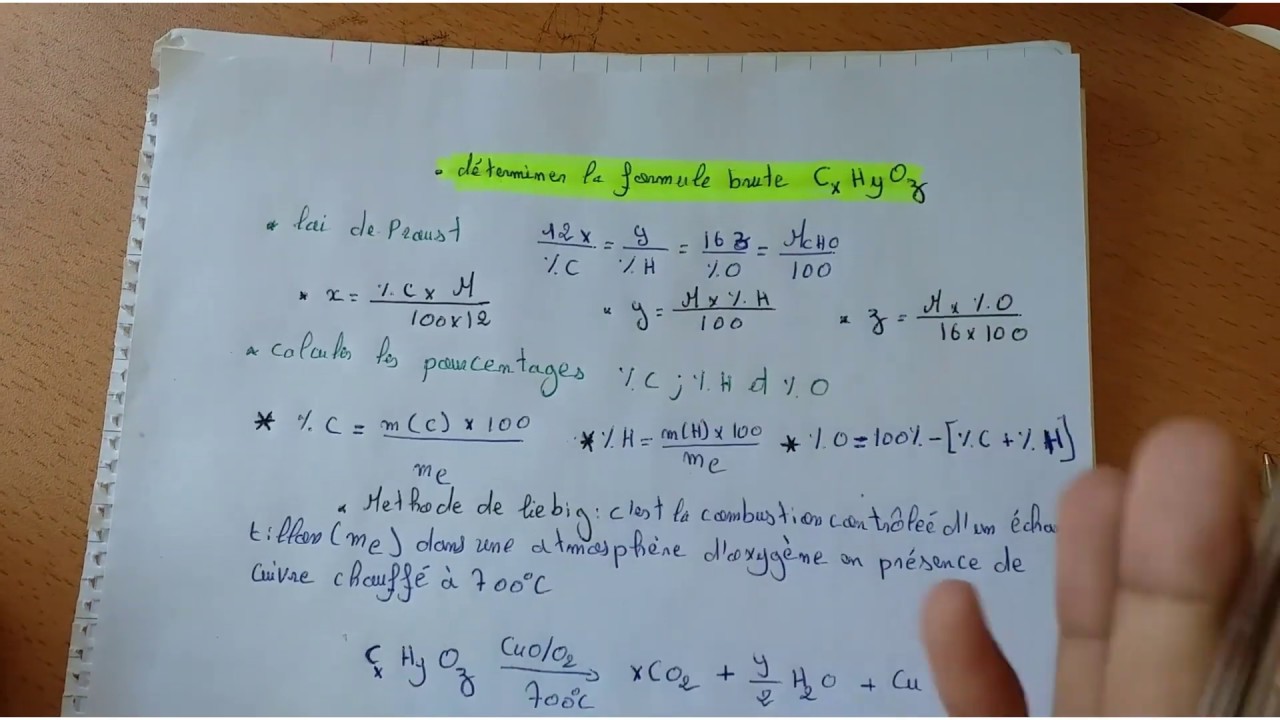 . déterminer la formule brute CxHyOz
* loi de Proust 12x/%C = y/%H = 16z/%O = MCHO/100
* x = %C x M / 100x12 * y = M x %H / 100 * z = M x %O / 16 x 100
* calculer les pourcentages %C ; %H et %O
* %C = m(C) x 100 / me * %H = m(H) x 100 / me * %O = 100% - [%C + %H]
. Methode de liebig : c'est la combustion contrôleé d'un écha
tillon (me) dans une atmosphère d'oxygène en présence de
Cuivre chauffé à 700°C
CxHyOz CuO/O2 / 700°C → xCO2 + y/2 H2O + Cu